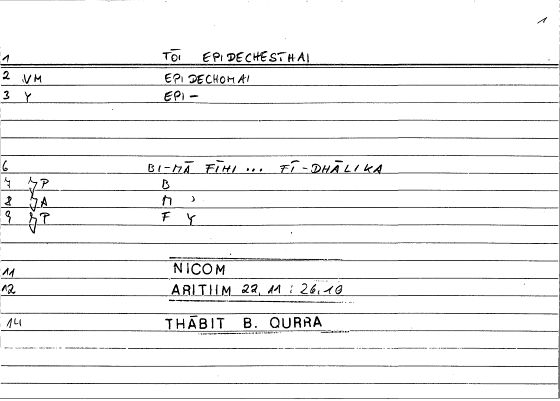 1
1 TŌI EPIDECHESTHAI
2 VM EPIDECHOMAI
3 Y EPI-
6 BI-MĀ FĪHI ... FĪ-DHĀLIKA
7 P B
8 A M
9 P F Y
11 NICOM
12 ARITHM 22,11 : 26,10
14 THĀBIT B. QURRA